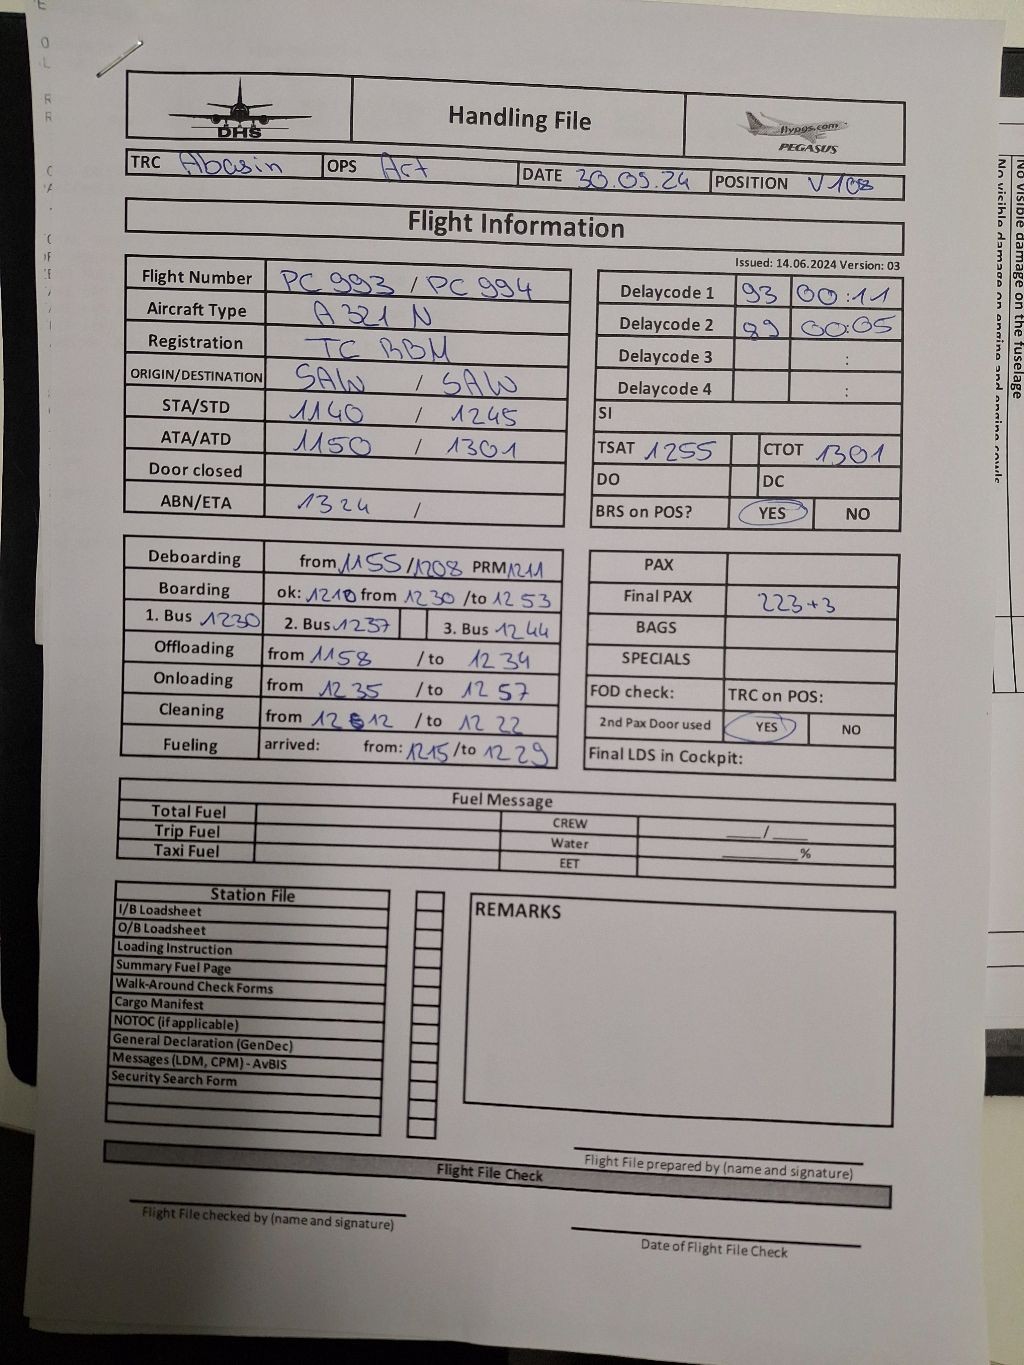 DHS
Handling File
flypgs.com
PEGASUS
TRC Abasin OPS Act DATE 30.09.24 POSITION V108
Flight Information
Issued: 14.06.2024 Version: 03
Flight Number PC 993 / PC 994
Aircraft Type A 321 N
Registration TC RBM
ORIGIN/DESTINATION SAW / SAW
STA/STD 1140 / 1245
ATA/ATD 1150 / 1301
Door closed
ABN/ETA 1324 /
Delaycode 1 93 00:11
Delaycode 2 89 00:05
Delaycode 3 :
Delaycode 4 :
SI
TSAT 1255 CTOT 1301
DO DC
BRS on POS? YES NO
Deboarding from 1155 /1208 PRM 1211
Boarding ok: 1210 from 1230 /to 1253
1. Bus 1230 2. Bus 1237 3. Bus 1244
Offloading from 1158 /to 1234
Onloading from 1235 /to 1257
Cleaning from 1212 /to 1222
Fueling arrived: from: 1215 /to 1229
PAX
Final PAX 223+3
BAGS
SPECIALS
FOD check: TRC on POS:
2nd Pax Door used YES NO
Final LDS in Cockpit:
Fuel Message
Total Fuel CREW ___/___
Trip Fuel Water ______%
Taxi Fuel EET
Station File
I/B Loadsheet
O/B Loadsheet
Loading Instruction
Summary Fuel Page
Walk-Around Check Forms
Cargo Manifest
NOTOC (if applicable)
General Declaration (GenDec)
Messages (LDM, CPM) - AvBIS
Security Search Form
REMARKS
Flight File prepared by (name and signature)
Flight File Check
Flight File checked by (name and signature)
Date of Flight File Check
No visible damage on the fuselage
No visible damage on engine and engine cowls